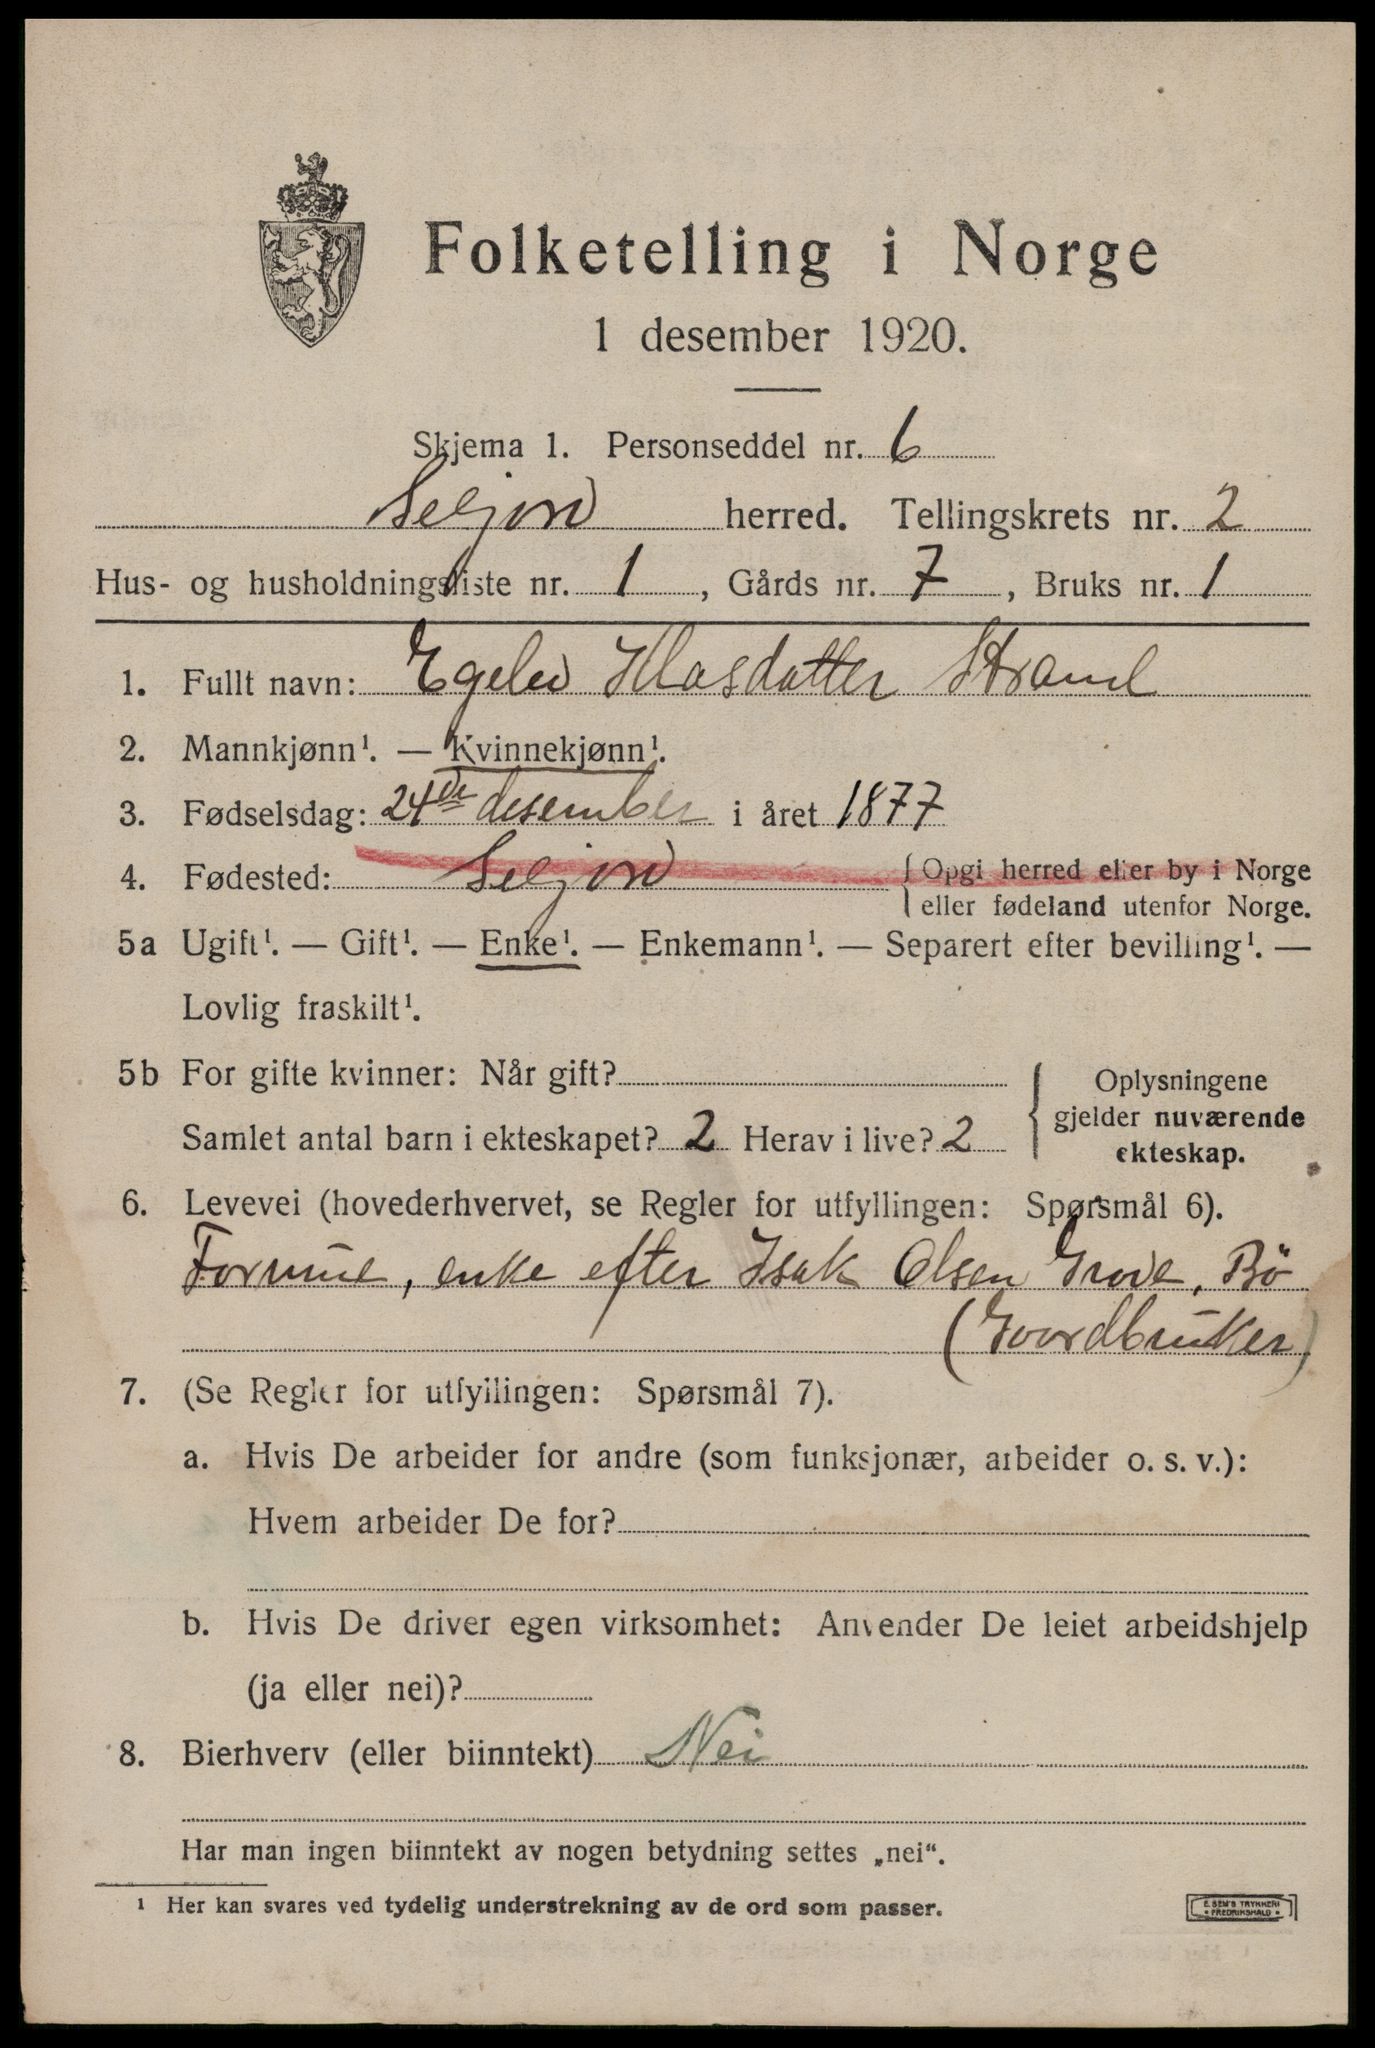 Folketelling i Norge
1 desember 1920.
Skjema 1. Personseddel nr. 6
Seljord herred. Tellingskrets nr. 2
Hus- og husholdningsliste nr. 1, Gårds nr. 7, Bruks nr. 1
1. Fullt navn: Egeleiv Klasdatter Strand
2. Mannkjønn¹. — Kvinnekjønn¹.
3. Fødselsdag: 24de desember i året 1877
4. Fødested: Seljord { Opgi herred eller by i Norge
eller fødeland utenfor Norge.
5a Ugift¹. — Gift¹. — Enke¹. — Enkemann¹. — Separert efter bevilling¹. —
Lovlig fraskilt¹.
5b For gifte kvinner: Når gift?
Samlet antal barn i ekteskapet? 2 Herav i live? 2
Oplysningene
gjelder nuværende
ekteskap.
6. Levevei (hovederhvervet, se Regler for utfyllingen: Spørsmål 6).
Formue, enke efter Isak Olsen Grove, Bø
(Goordbruker)
7. (Se Regler for utfyllingen: Spørsmål 7).
a. Hvis De arbeider for andre (som funksjonær, arbeider o. s. v.):
Hvem arbeider De for?
b. Hvis De driver egen virksomhet: Anvender De leiet arbeidshjelp
(ja eller nei)?
8. Bierhverv (eller biinntekt) Nei
Har man ingen biinntekt av nogen betydning settes „nei“.
¹ Her kan svares ved tydelig understrekning av de ord som passer.
E. SEM'S TRYKKERI
FREDRIKSHALD